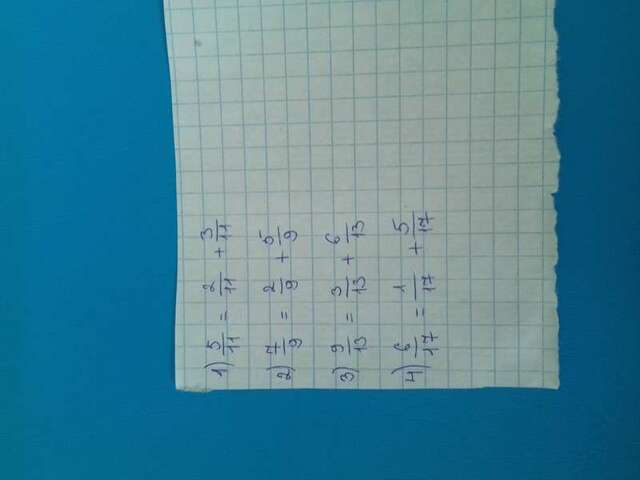 1) 5/11 = 2/11 + 3/11
2) 7/9 = 2/9 + 5/9
3) 9/13 = 3/13 + 6/13
4) 6/17 = 1/17 + 5/17